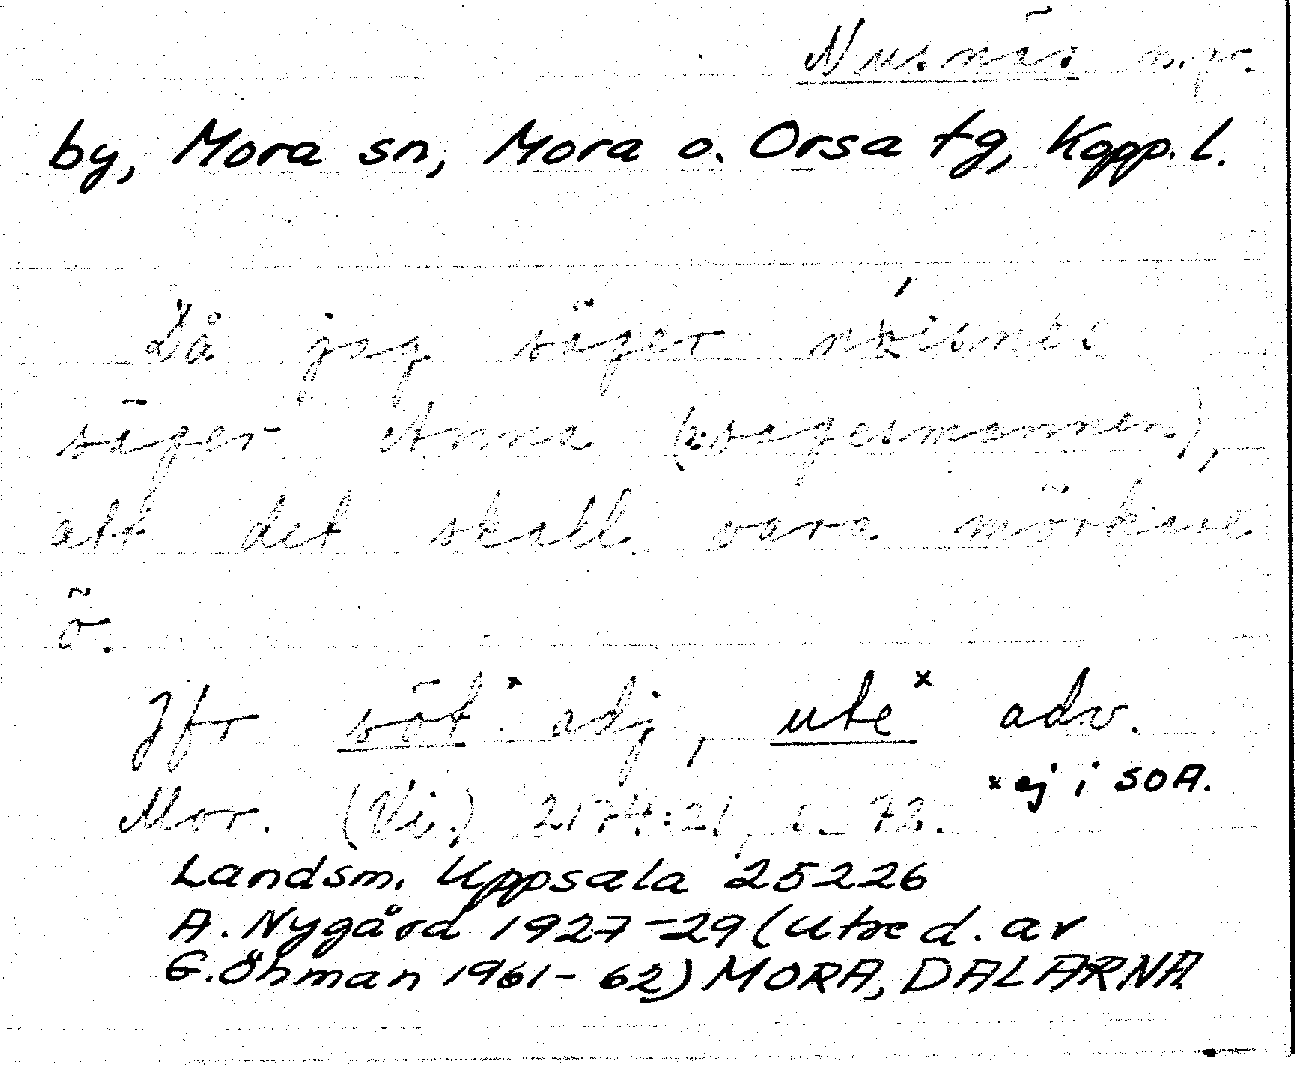 Nusnäs n.pr.
by, Mora sn, Mora o. Orsa tg, Kopp. l.
Då jag säger
säger Anna (sagesmannen),
att det skall vara mörkare
ö.
Jfr söt x adj, ute x adv.
x ej i SOA.
Mor. (Vi.) 2174:21, s. 73.
Landsm. Uppsala 25226
A. Nygård 1927-29 (utred. av
G. Öhman 1961-62) MORA, DALARNA